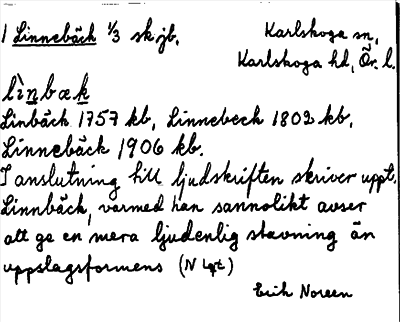 1 Linnebäck 1/3 sk jb.
Karlskoga sn,
Karlskoga hd, Ör. l.
lìnbæk
Linbäch 1757 kb, Linnebeck 1802 kb,
Linnebäck 1906 kb.
I anslutning till ljudskriften skriver uppt.
Linnbäck, varmed han sannolikt avser
att ge en mera ljudenlig stavning än
uppslagsformens (N
Erik Noreen